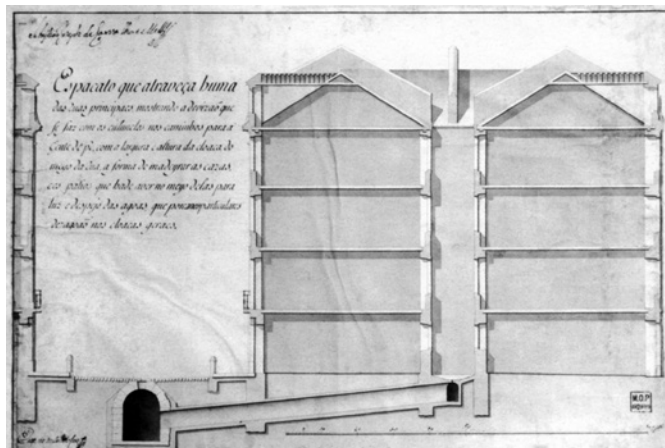 Espacato que atraveça huma
das ruas principaes, mostrando a devizaõ que
se faz com os culunelos nos caminhos para a
Gente de pé, com a largura e altura da cloaca do
meyo da rua, a fórma de madeyrar as cazas
e os patios que hade aver no meyo delas para
luz, e despejo das agoas, que por canos particulares
dezagoaõ nas cloacas geraes.
M.O.P